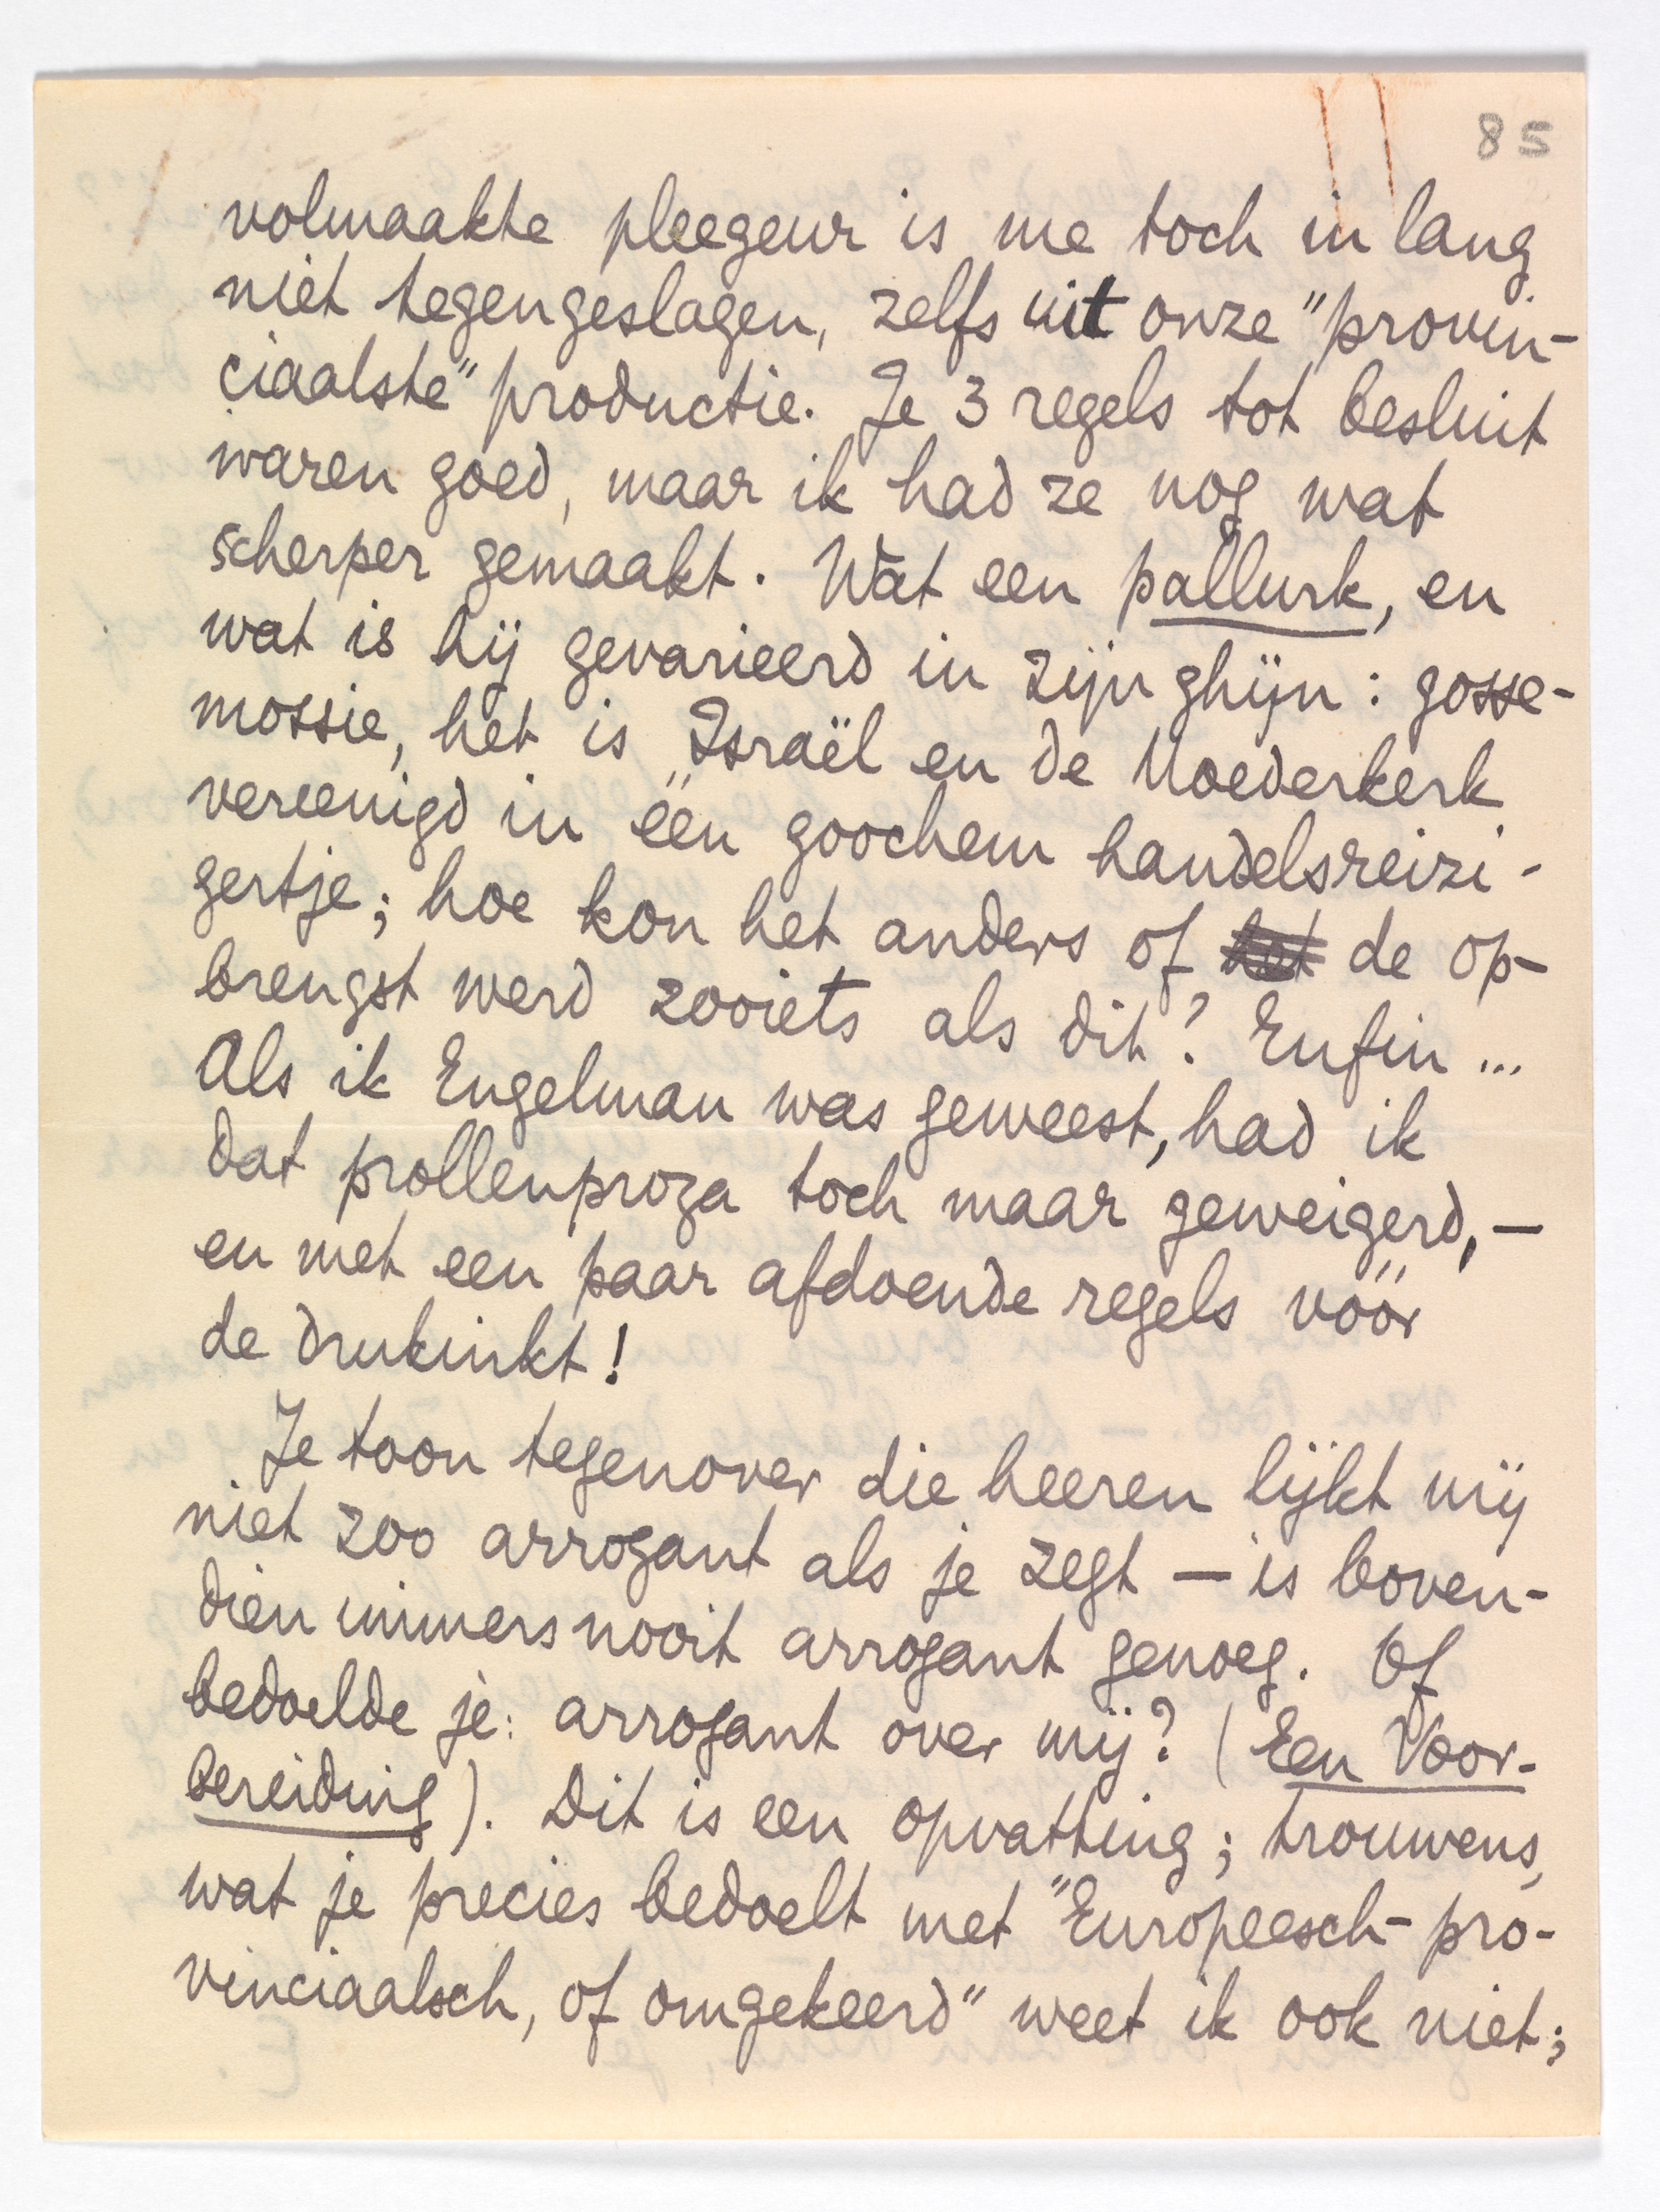 85
volmaakte pleegeur is me toch in lang
niet tegengeslagen, zelfs uit onze "provin-
ciaalste" productie. Je 3 regels tot besluit
waren goed, maar ik had ze nog wat
scherper gemaakt. Wat een pallurk, en
wat is hij gevarieerd in zijn ghijn: gosse-
mossie, het is Israël en de Moederkerk
vereenigd in één goochem handelsreizi-
gertje; hoe kon het anders of het de op-
brengst werd zooiets als dit? Enfin ...
Als ik Engelman was geweest, had ik
dat prollenproza toch maar geweigerd, —
en met een paar afdoende regels vóór
de drukinkt!
Je toon tegenover die heeren lijkt mij
niet zoo arrogant als je zegt — is boven-
dien immers nooit arrogant genoeg. Of
bedoelde je: arrogant over mij? (Een Voor-
bereiding). Dit is een opvatting; trouwens,
wat je precies bedoelt met "Europeesch-pro-
vinciaalsch, of omgekeerd" weet ik ook niet;